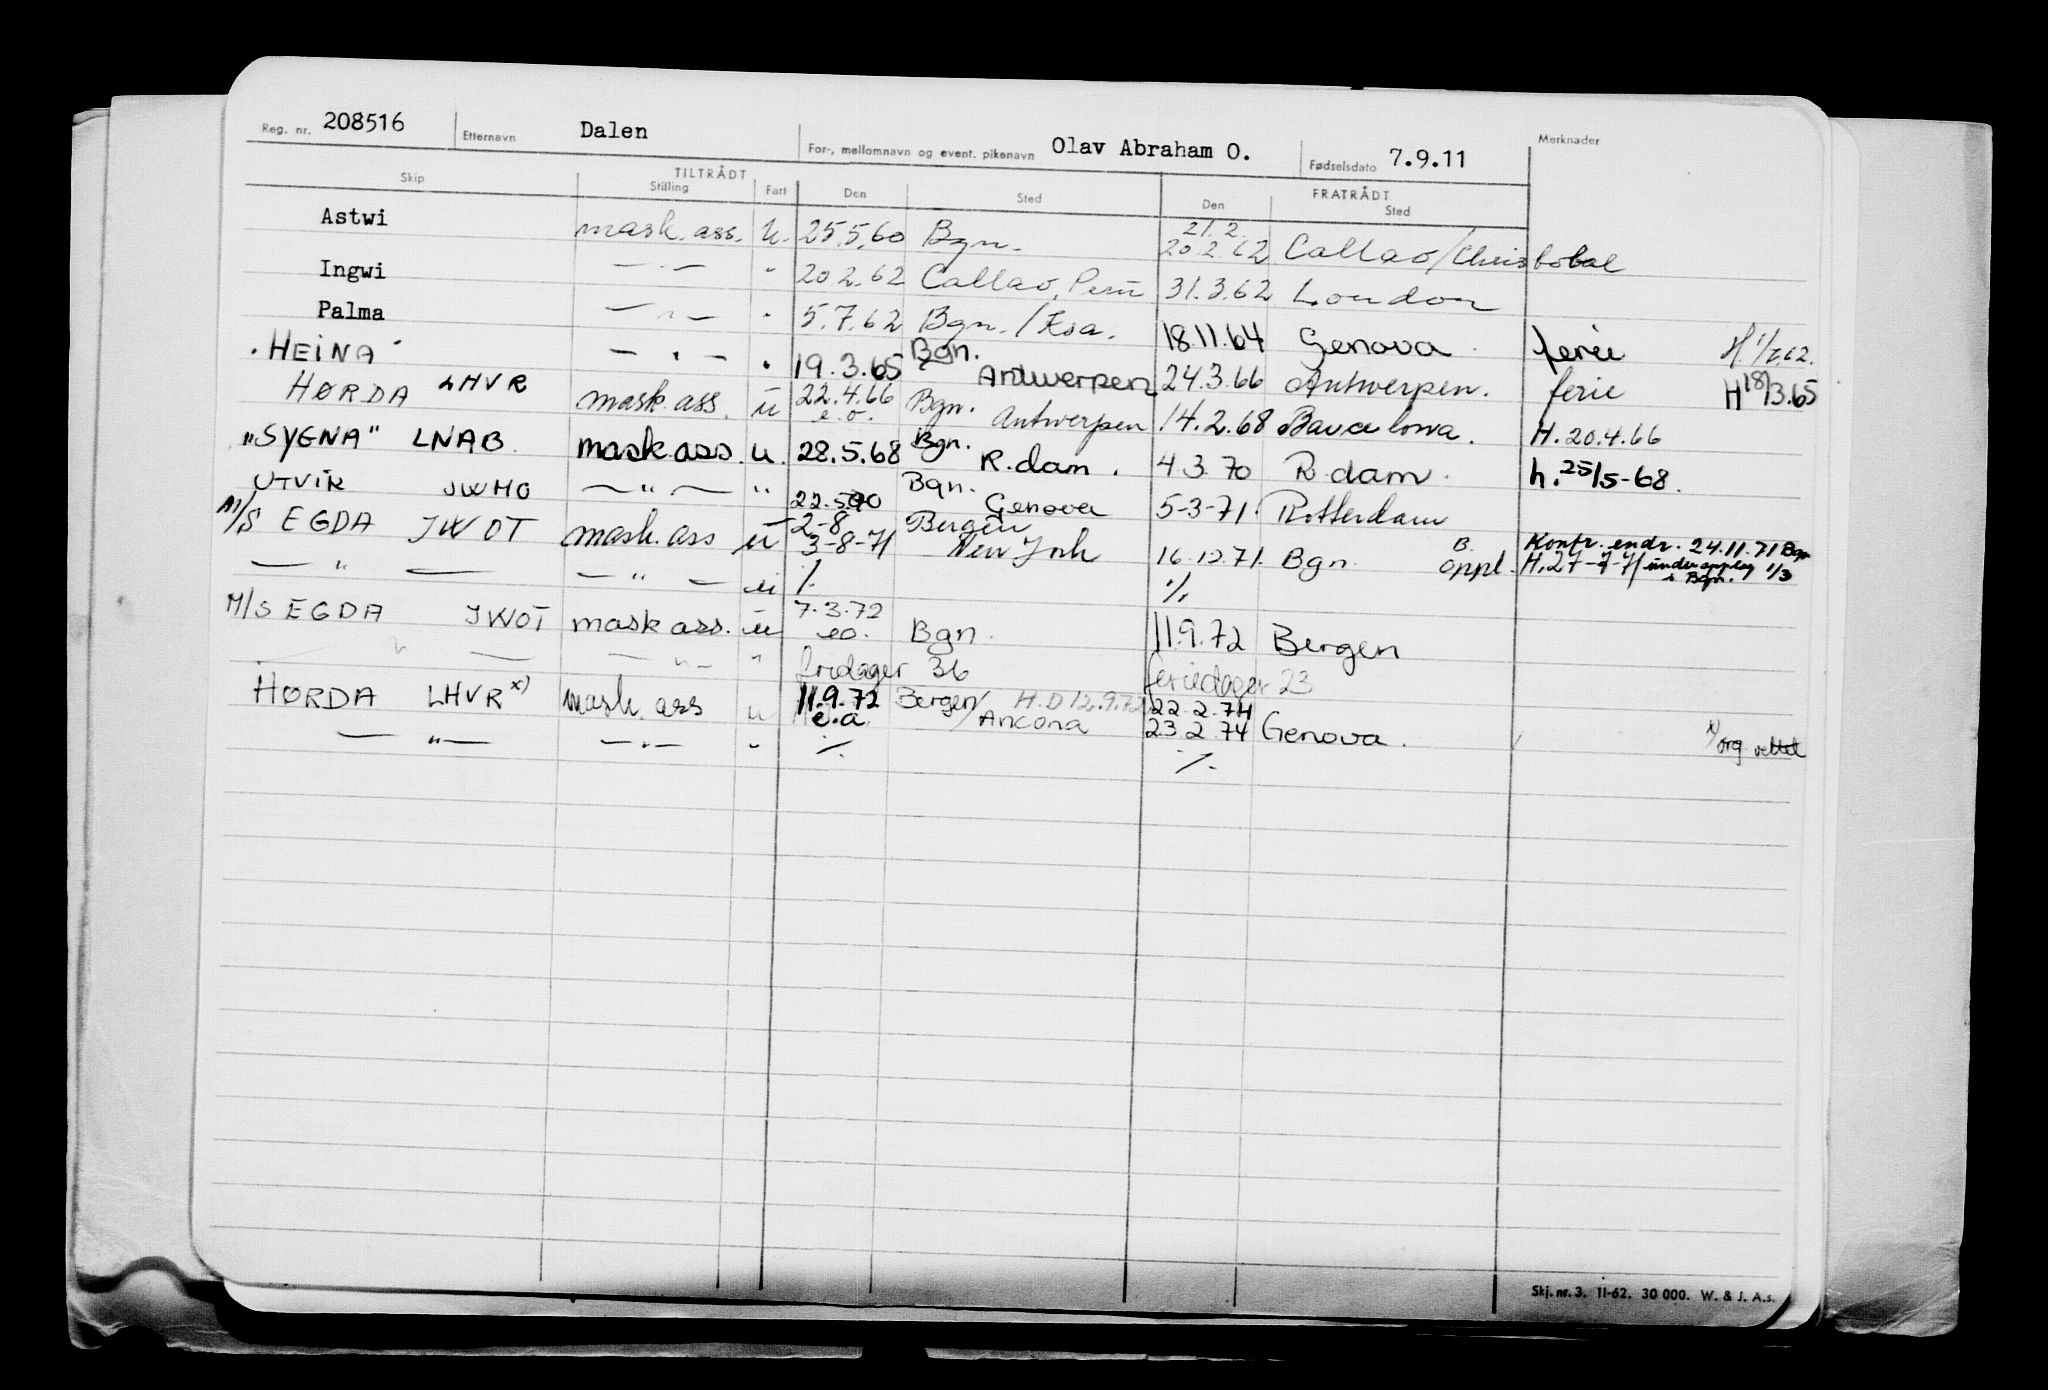 Reg. nr. 208516 Etternavn Dalen For-, mellomnavn og event. pikenavn Olav Abraham O. Fødselsdato 7.9.11 Merknader
TILTRÅDT FRATRÅDT
Skip Stilling Fart Den Sted Den Sted
Astwi mask. ass. u. 25.5.60 Bgn. 21.2. 20.2.62 Callao/Christobal
Ingwi — " — " 20.2.62 Callao, Peru 31.3.62 London
Palma — " — " 5.7.62 Bgn. / 18.11.64 Genova ferie
"HEINA" — " — " 19.3.65 Bgn. Antwerpen 24.3.66 Antwerpen. ferie H 18/3.65
HØRDA LHVR mask. ass. u 22.4.66 e.o. Bgn. Antwerpen 14.2.68 Barcelona. H. 20.4.66
"SYGNA" LNAB. mask ass. u. 28.5.68 Bgn. R.dam. 4.3.70 R.dam. h. 25/5-68.
UTVIK JWHO — " — " 22.5.70 Bgn. Genova 5-3-71. Rotterdam
M/S EGDA JWOT mask. ass u 2-8 3-8-71 Bergen New York 16.12.71. Bgn. B. oppl. Kontr. endr. 24.11.71 Bgn H. 27-7-71 under opplag 1/3 i Bgn.
— " — — " — u % %
M/S EGDA JWOT mask ass. u 7.3.72 eo. Bgn. 11.9.72 Bergen
— " — — " — " fridager 36 feriedager 23
HØRDA LHVR x) mask. ass u 11.9.72 e.a. Bergen/Ancona H.D 12.9.72 22.2.74 23.2.74 Genova.
— " — — " — " % % x) org rettet
Skj. nr. 3. 11-62. 30 000. W. & J. A.s.